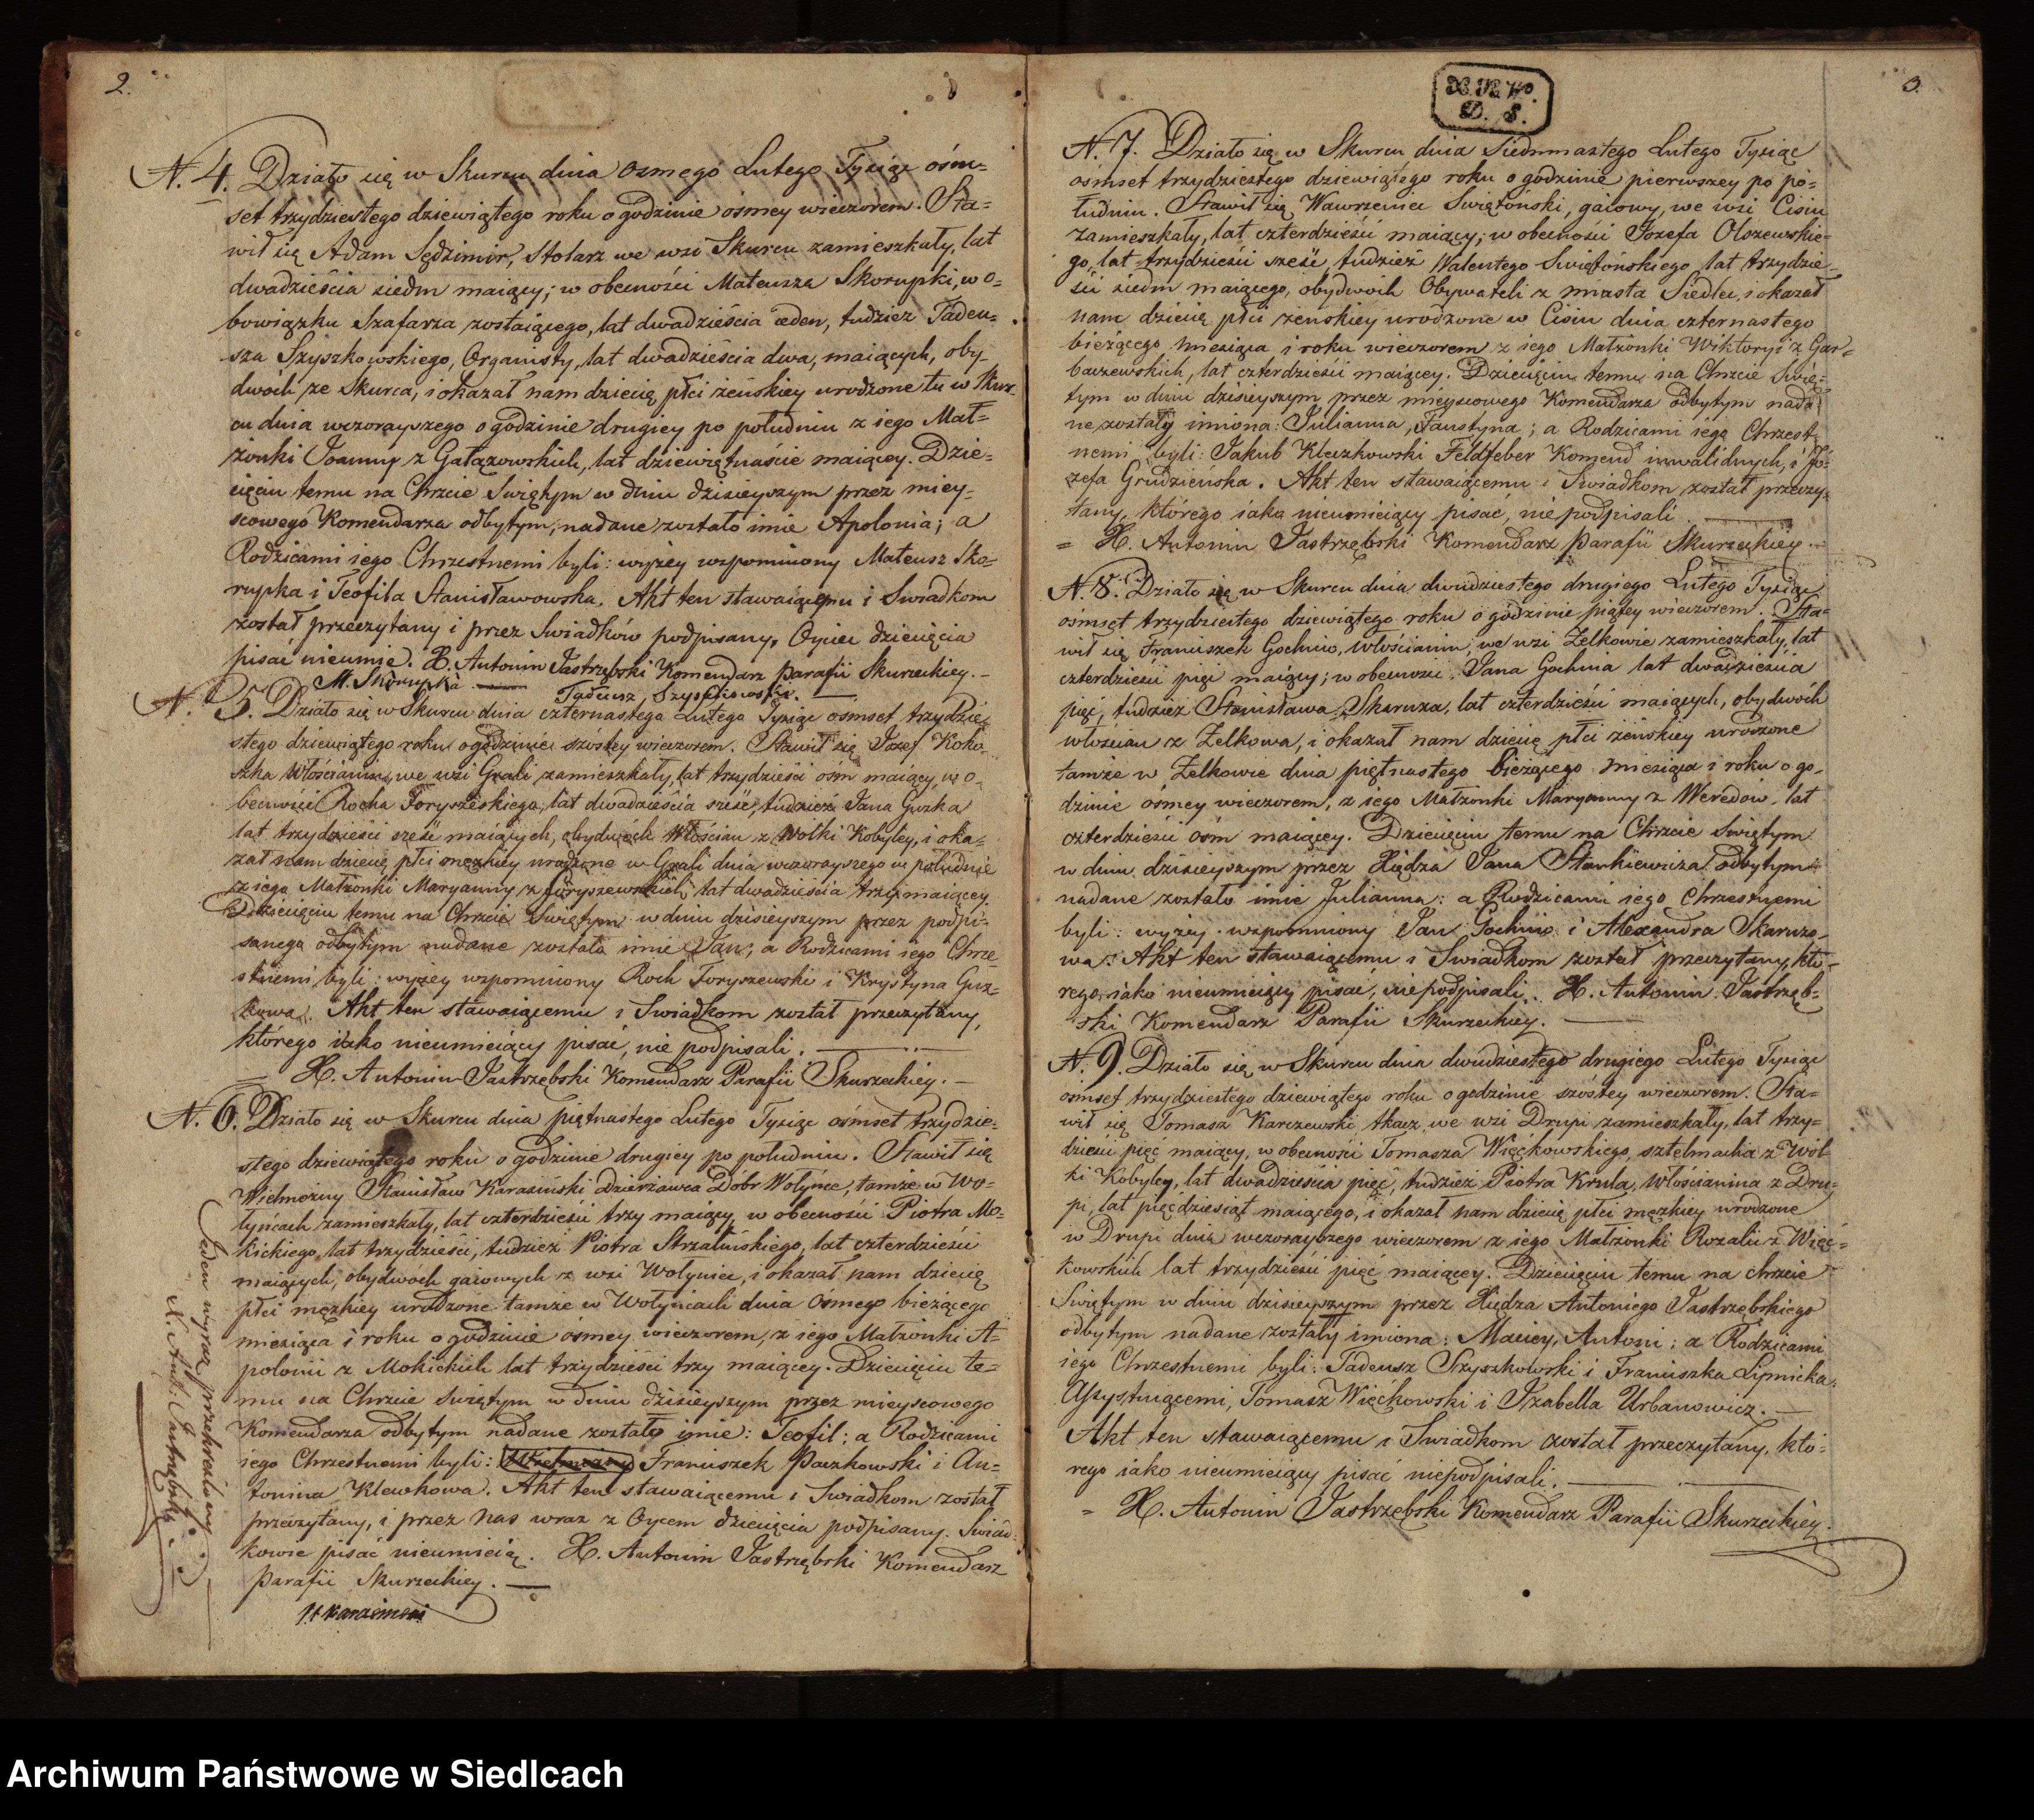 2.
N. 4. Działo się w Skurcu dnia osmego Lutego Tysiąc óśm-
set trzydziestego dziewiątego roku o godzinie osmey wieczorem. Sta-
wił się Adam Sędzimir, Stolarz we wsi Skurcu zamieszkały, lat
dwadzieścia siedm maiący; w obecności Mateusza Skorupki, w o-
bowiązku Szafarza zostaiącego, lat dwadzieścia ieden, tudzież Tadeu-
sza Szyszkowskiego, Organisty, lat dwadzieścia dwa, maiących, oby-
dwóch ze Skurca, i okazał nam dziecię płci żeńskiey urodzone tu w Skur-
cu dnia wczorayszego o godzinie drugiey po południu z iego Mał-
żonki Joanny z Gałązowskich, lat dziewiętnaście maiącey. Dzie-
cięciu temu na Chrzcie Swiętym w dniu dzisieyszym przez miey-
scowego Komendarza odbytym, nadane zostało imie Apolonia; a
Rodzicami iego Chrzestnemi byli: wyżey wspomniony Mateusz Sko-
rupka i Teofila Stanisławowska. Akt ten stawaiącemu i Swiadkom
został przeczytany i przez Swiadków podpisany, Oyciec dziecięcia
pisać nieumie. X. Antonin Jastrzębski Komendarz Parafii Skurzeckiey. -
M. Skorupka Tadeusz Szyszkowski.
N. 5. Działo się w Skurcu dnia czternastego Lutego Tysiąc osmset trzydzie-
stego dziewiątego roku o godzinie szóstey wieczorem. Stawił się Jozef Koko-
szka Włościanin, we wsi Grali zamieszkały, lat trzydzieści ośm maiący, w o-
becności Rocha Toryszeskiego, lat dwadzieścia sześć, tudzież Jana Guzka
lat trzydzieści sześć maiących, obydwóch Włościan z Wolki Kobyley, i oka-
zał nam dziecię płci męzkiey urodzone w Grali dnia wczorayszego w południe
z iego Małżonki Maryanny z Toryszewskich, lat dwadzieścia trzy maiącey.
Dziecięciu temu na Chrzcie Swiętym w dniu dzisieyszym przez podpi-
sanego odbytym nadane zostało imie Jan; a Rodzicami iego Chrze-
stnemi byli: wyżey wspomniony Roch Toryszewski i Krystyna Guz-
kowa. Akt ten stawaiącemu i Swiadkom został przeczytany,
którego iako nieumieiący pisać, nie podpisali.
X. Antonin Jastrzębski Komendarz Parafii Skurzeckiey. -
N. 6. Działo się w Skurcu dnia piętnastego Lutego Tysiąc ośmset trzydzie-
stego dziewiątego roku o godzinie drugiey po południu. Stawił się
Wielmożny Stanisław Karasiński Dzierżawca Dóbr Wołyńce, tamże w Wo-
łyńcach zamieszkały, lat czterdzieści trzy maiący, w obecności Piotra Mo-
kickiego, lat trzydzieści, tudzież Piotra Strzalińskiego, lat czterdzieści
maiących, obydwóch gaiowych z wsi Wołyniec, i okazał nam dziecię
płci męzkiey urodzone tamże w Wołyńcach dnia Osmego bieżącego
miesiąca i roku o godzinie ósmey wieczorem, z iego Małżonki A-
polonii z Mokickich lat trzydzieści trzy maiącey. Dziecięciu te-
mu na Chrzcie Swiętym w dniu dzisieyszym przez mieyscowego
Komendarza odbytym nadane zostało imie: Teofil; a Rodzicami
iego Chrzestnemi byli: Wielmożny Franciszek Paczkowski i An-
tonina Klewkowa. Akt ten stawaiącemu i Swiadkom został
przeczytany, i przez nas wraz z Oycem dziecięcia podpisany. Swiad-
kowie pisać nieumieią. X. Antonin Jastrzębski Komendarz
Parafii Skurzeckiey.
Jeden wyraz przekreślony
X. Ant: Jastrzębski
3.
N. 7. Działo się w Skurcu dnia Siedmnastego Lutego Tysiąc
osmset trzydziestego dziewiątego roku o godzinie pierwszey po po-
łudniu. Stawił się Wawrzeniec Swiętoński, gaiowy, we wsi Cisiu
zamieszkały, lat czterdzieści maiący; w obecności Jozefa Olszewskie-
go, lat trzydzieści sześć, tudzież Walentego Swiętońskiego lat trzydzie-
ści siedm maiącego, obydwóch Obywateli z miasta Siedlec, i okazał
nam dziecię płci żenskiey urodzone w Cisiu dnia czternastego
bieżącego miesiąca i roku wieczorem z iego Małżonki Wiktoryi z Gar-
baczewskich, lat czterdzieści maiącey. Dziecięciu temu na Chrzcie Swię-
tym w dniu dzisieyszym przez mieyscowego Komendarza odbytym nada-
ne zostały imiona: Julianna, Faustyna; a Rodzicami iego Chrzest-
nemi byli: Jakub Kleczkowski Feldfeber Komend inwalidnych, i Jó-
zefa Grudzieńska. Akt ten stawaiącemu i Swiadkom został przeczy-
tany, którego iako nieumieiący pisać, nie podpisali
= X. Antonin Jastrzębski Komendarz Parafii Skurzeckiey. -
N. 8. Działo się w Skurcu dnia dwudziestego drugiego Lutego Tysiąc
ośmset trzydziestego dziewiątego roku o godzinie piątey wieczorem. Sta-
wił się Franciszek Gochnio, Włościanin, we wsi Żelkowie zamieszkały, lat
czterdzieści pięć maiący; w obecności Jana Gochnia lat dwadzieścia
pięć, tudzież Stanisława Skaruza, lat czterdzieści maiących, obydwóch
włościan z Żelkowa, i okazał nam dziecię płci żeńskiey urodzone
tamże w Żelkowie dnia piętnastego bieżącego miesiąca i roku o go-
dzinie ósmey wieczorem, z iego Małżonki Maryanny z Weredow, lat
czterdzieści ośm maiącey. Dziecięciu temu na Chrzcie Swiętym
w dniu dzisieyszym przez Xiędza Jana Stankiewicza odbytym
nadane zostało imie Julianna: a Rodzicami iego Chrzestnemi
byli: wyżey wspomniony Jan Gochnio i Alexandra Skaruzo-
wa. Akt ten stawaiącemu i Swiadkom został przeczytany, któ-
rego, iako nieumieiący pisać, niepodpisali. X. Antonin Jastrzęb-
ski Komendarz Parafii Skurzeckiey.
N. 9. Działo się w Skurcu dnia dwudziestego drugiego Lutego Tysiąc
ośmset trzydziestego dziewiątego roku o godzinie szóstey wieczorem. Sta-
wił się Tomasz Karczewski tkacz we wsi Drupi zamieszkały, lat trzy-
dzieści pięć maiący, w obecności Tomasza Więckowskiego, sztelmacha z Wól-
ki Kobyley, lat dwadzieścia pięć, tudzież Piotra Krula, Włościanina z Dru-
pi, lat pięćdziesiąt maiącego, i okazał nam dziecię płci męzkiey urodzone
w Drupi dnia wczorayszego wieczorem z iego Małżonki Rozalii z Więc-
kowskich lat trzydzieści pięć maiącey. Dziecięciu temu na chrzcie
Swiętym w dniu dzisieyszym przez Xiędza Antoniego Jastrzębskiego
odbytym nadane zostały imiona: Maciey, Antoni; a Rodzicami
iego Chrzestnemi byli: Tadeusz Szyszkowski i Franciszka Lipnicka.
Assystuiącemi, Tomasz Więckowski i Izabella Urbanowicz. -
Akt ten stawaiącemu i Swiadkom został przeczytany, któ-
rego iako nieumieiący pisać niepodpisali.
= X. Antonin Jastrzębski Komendarz Parafii Skurzeckiey.
Archiwum Państwowe w Siedlcach